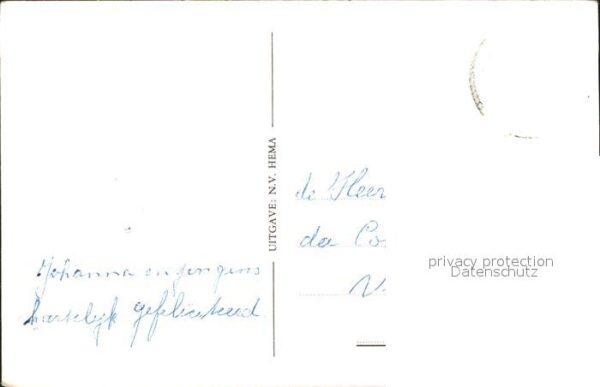 UITGAVE: N.V. HEMA
de Heer
da Co
V
Johanna en jongens
hartelijk gefeliciteerd
privacy protection
Datenschutz